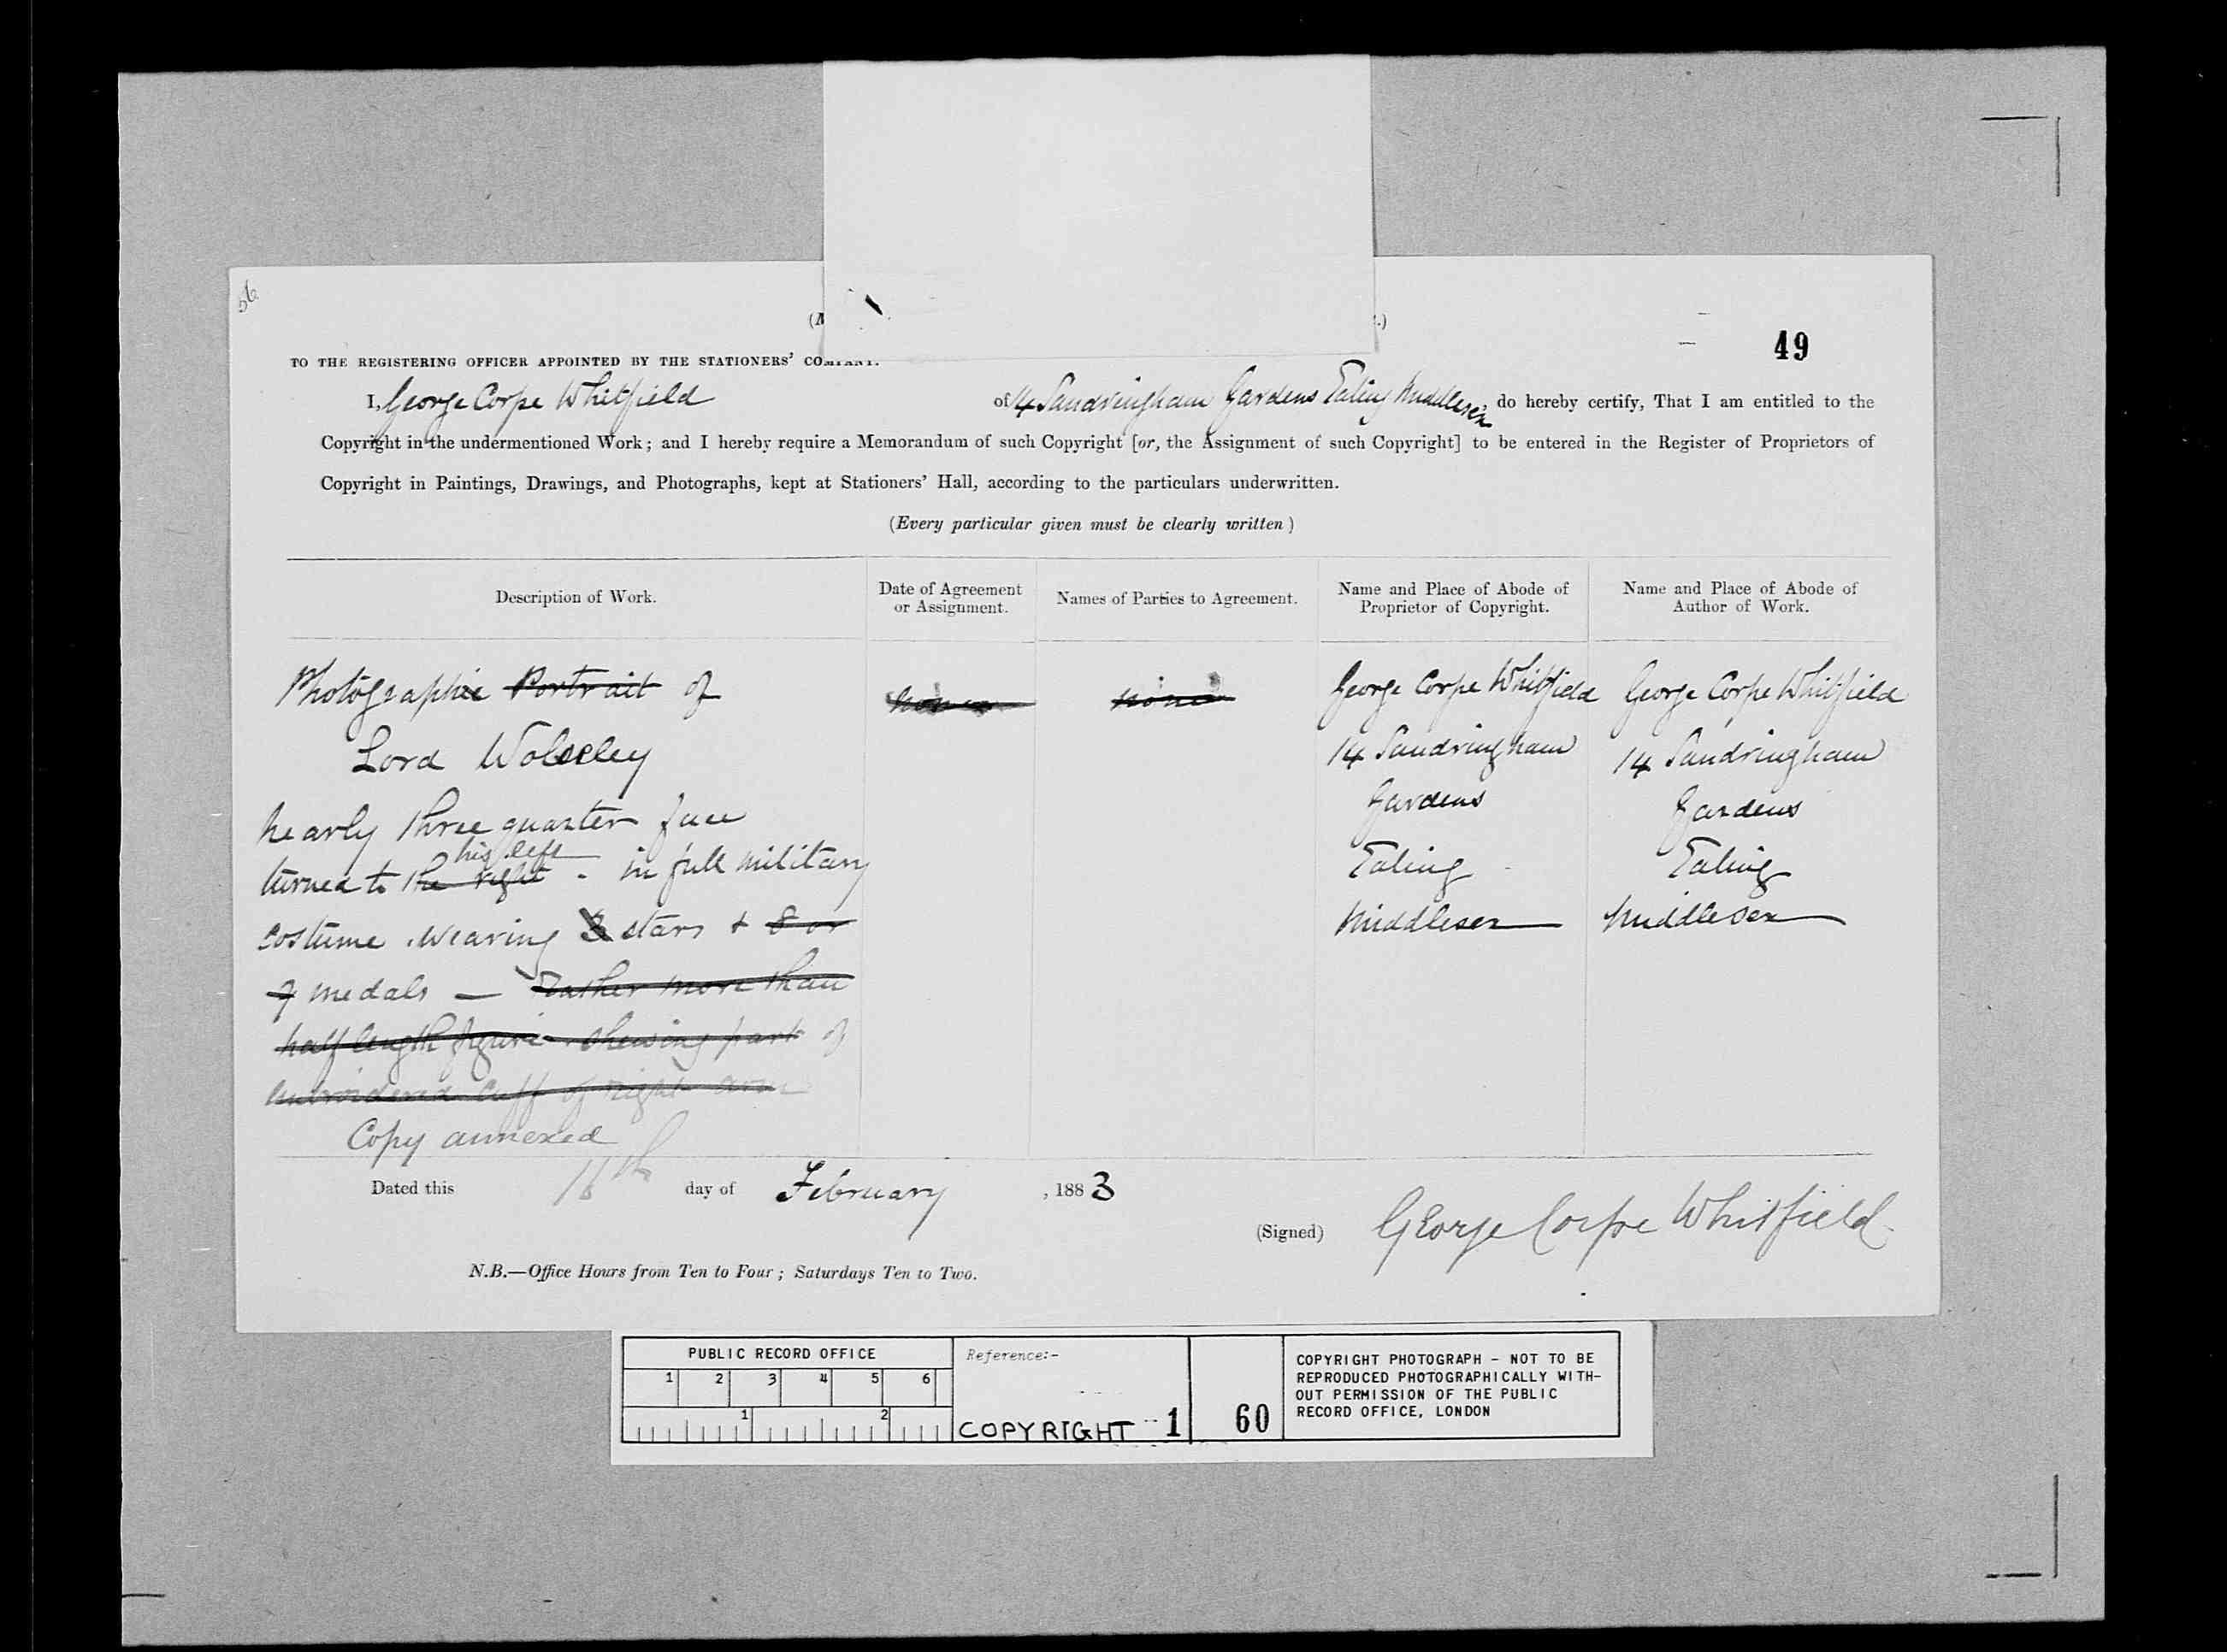 56
49
TO THE REGISTERING OFFICER APPOINTED BY THE STATIONERS' COMPANY.
I, George Corpe Whitfield of 14 Sandringham Gardens Ealing Middlesex, do hereby certify, That I am entitled to the
Copyright in the undermentioned Work; and I hereby require a Memorandum of such Copyright [or, the Assignment of such Copyright] to be entered in the Register of Proprietors of
Copyright in Paintings, Drawings, and Photographs, kept at Stationers' Hall, according to the particulars underwritten.
(Every particular given must be clearly written)
Description of Work.
Date of Agreement
or Assignment.
Names of Parties to Agreement.
Name and Place of Abode of
Proprietor of Copyright.
Name and Place of Abode of
Author of Work.
Photographic Portrait of
Lord Wolseley
nearly three quarter face
his left
turned to the right - in full military
costume. wearing 3 stars + 8 or
9 medals — Rather more than
half length figure - shewing part of
embroidered cuff of right arm
Copy annexed
none
none
George Corpe Whitfield
14 Sandringham
Gardens
Ealing
Middlesex
George Corpe Whitfield
14 Sandringham
Gardens
Ealing
Middlesex
Dated this 16th day of February, 1883
(Signed) George Corpe Whitfield
N.B.—Office Hours from Ten to Four; Saturdays Ten to Two.
PUBLIC RECORD OFFICE
1 2 3 4 5 6
1 2
Reference:-
COPYRIGHT 1
60
COPYRIGHT PHOTOGRAPH - NOT TO BE
REPRODUCED PHOTOGRAPHICALLY WITH-
OUT PERMISSION OF THE PUBLIC
RECORD OFFICE, LONDON